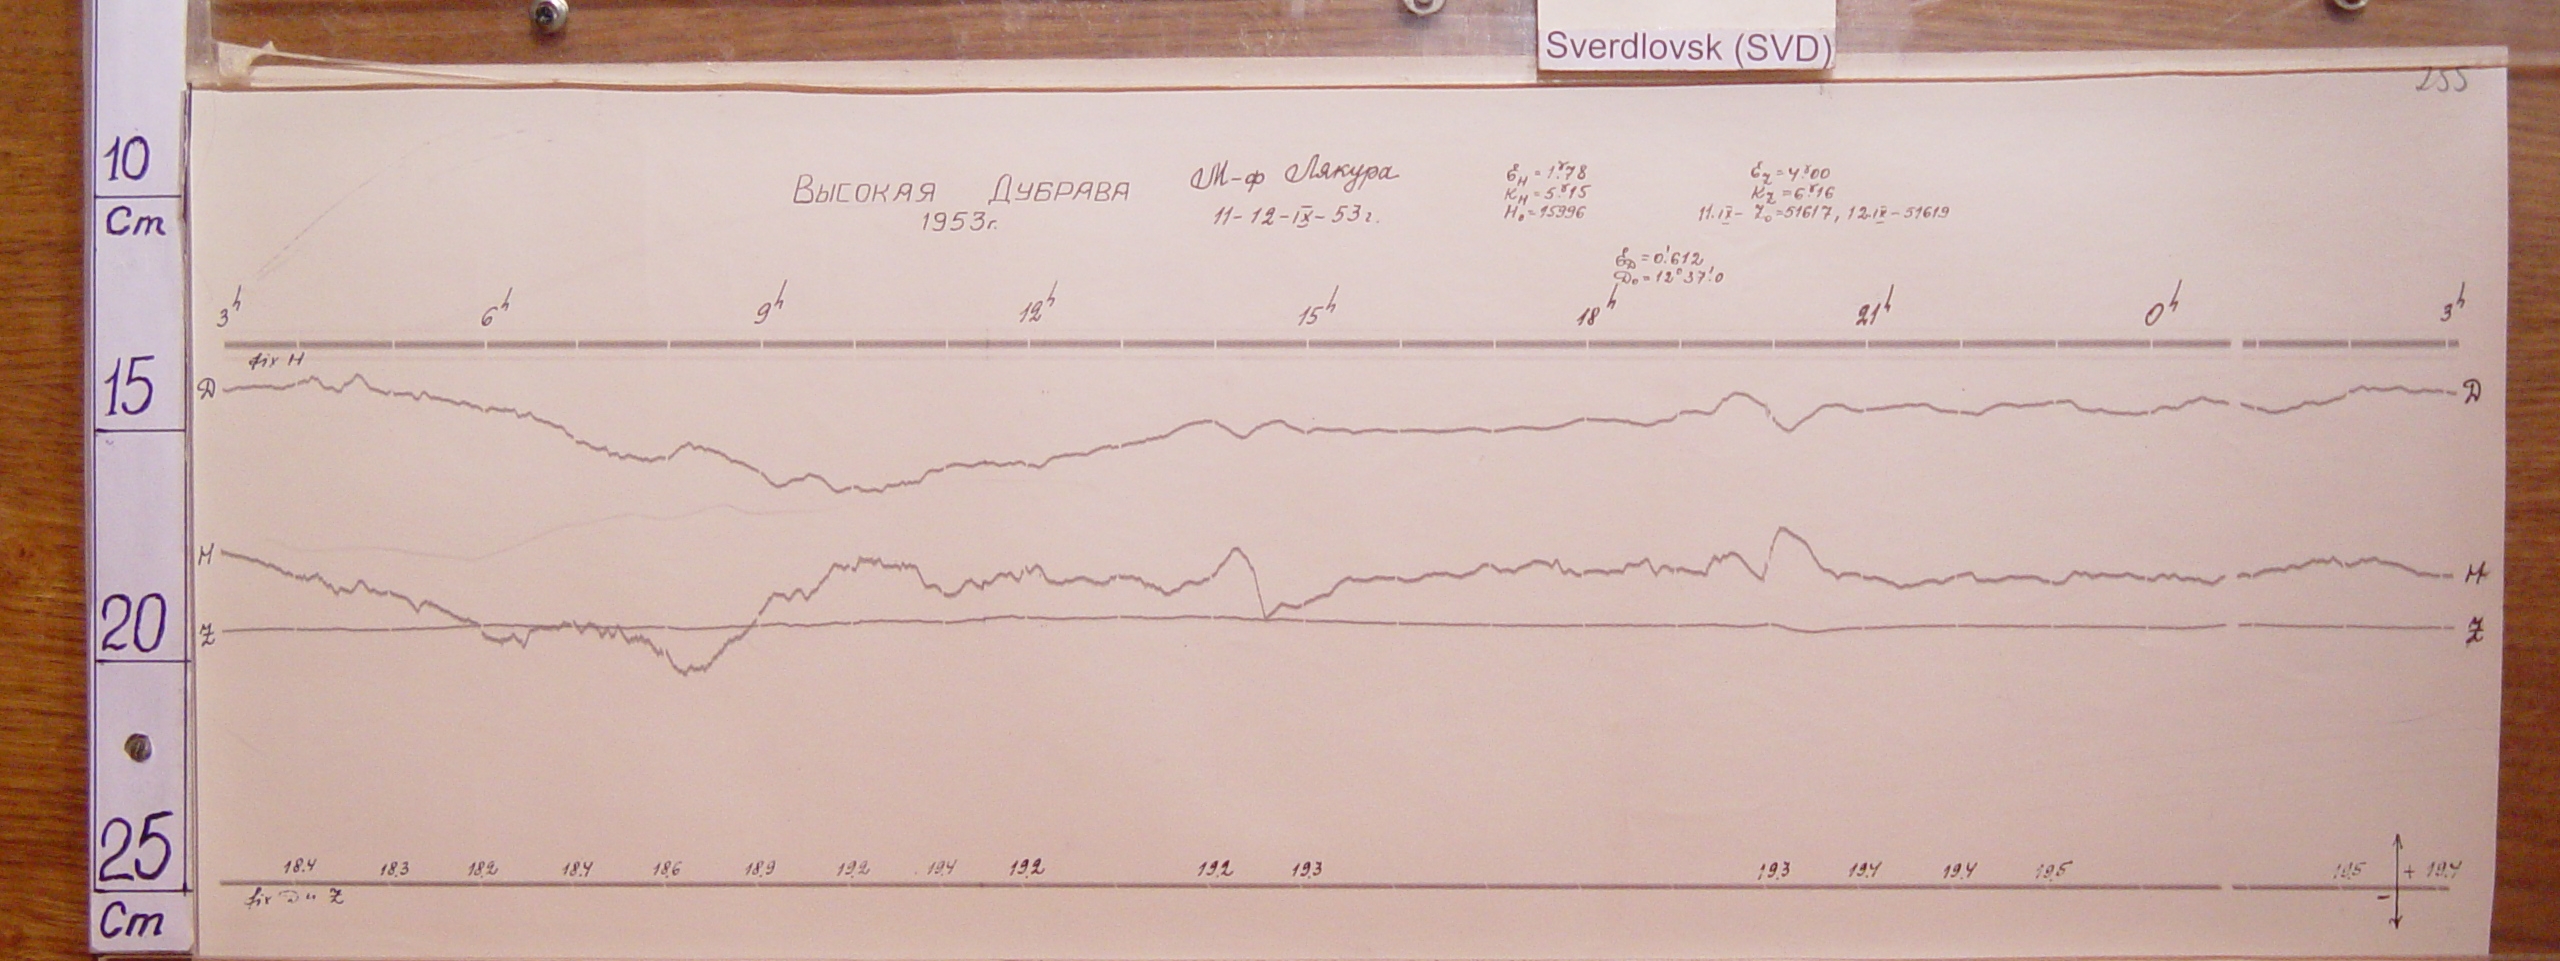 Sverdlovsk (SVD)
255
10
Cm
15
20
25
Cm
Высокая Дубрава
1953г.
М-ф Лякура
11-12-IX-53г.
Ԑн = 1.ˠ78
Kн = 5.ˠ15
H₀ = 15996
Ԑz = 4.ˠ00
Kz = 6.ˠ16
11.IX - Z₀ = 51617, 12.IX - 51619
ԐD = 0.'612
D₀ = 12°37.'0
3ʰ 6ʰ 9ʰ 12ʰ 15ʰ 18ʰ 21ʰ 0ʰ 3ʰ
fix H
D D
H H
Z Z
18.4 18.3 18.2 18.4 18.6 18.9 19.2 19.4 19.2 19.2 19.3 19.3 19.4 19.4 19.5 19.5 + 19.4
fix D и Z
-